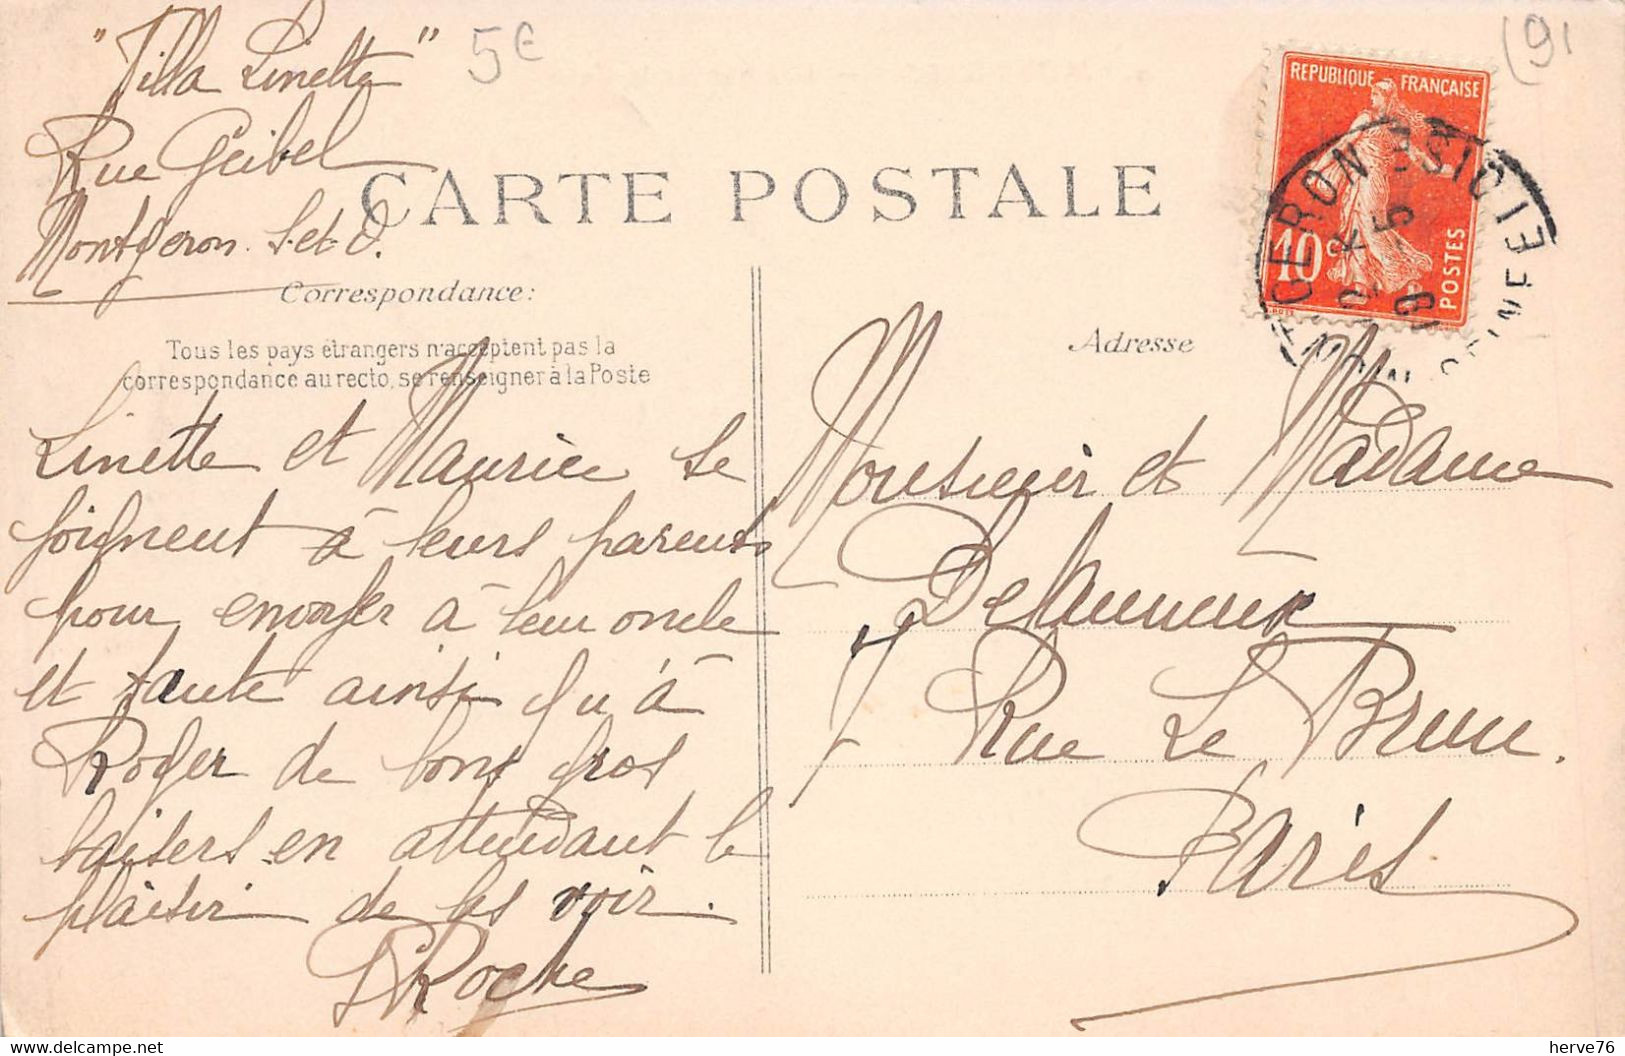 "Villa Linette"
5€
(91
Rue Geibel
Montgeron. S. et O.
CARTE POSTALE
REPUBLIQUE FRANÇAISE
10c
POSTES
Correspondance:
Tous les pays étrangers n'acceptent pas la
correspondance au recto, se renseigner à la Poste
Linette et Maurice se
joignent à leurs parents
pour envoyer à leur oncle
et tante ainsi qu'à
Roger de bons gros
baisers en attendant le
plaisir de les voir.
Roche
Adresse
Monsieur et Madame
7 Rue Le Brun.
Paris
Delcampe.net
herve76